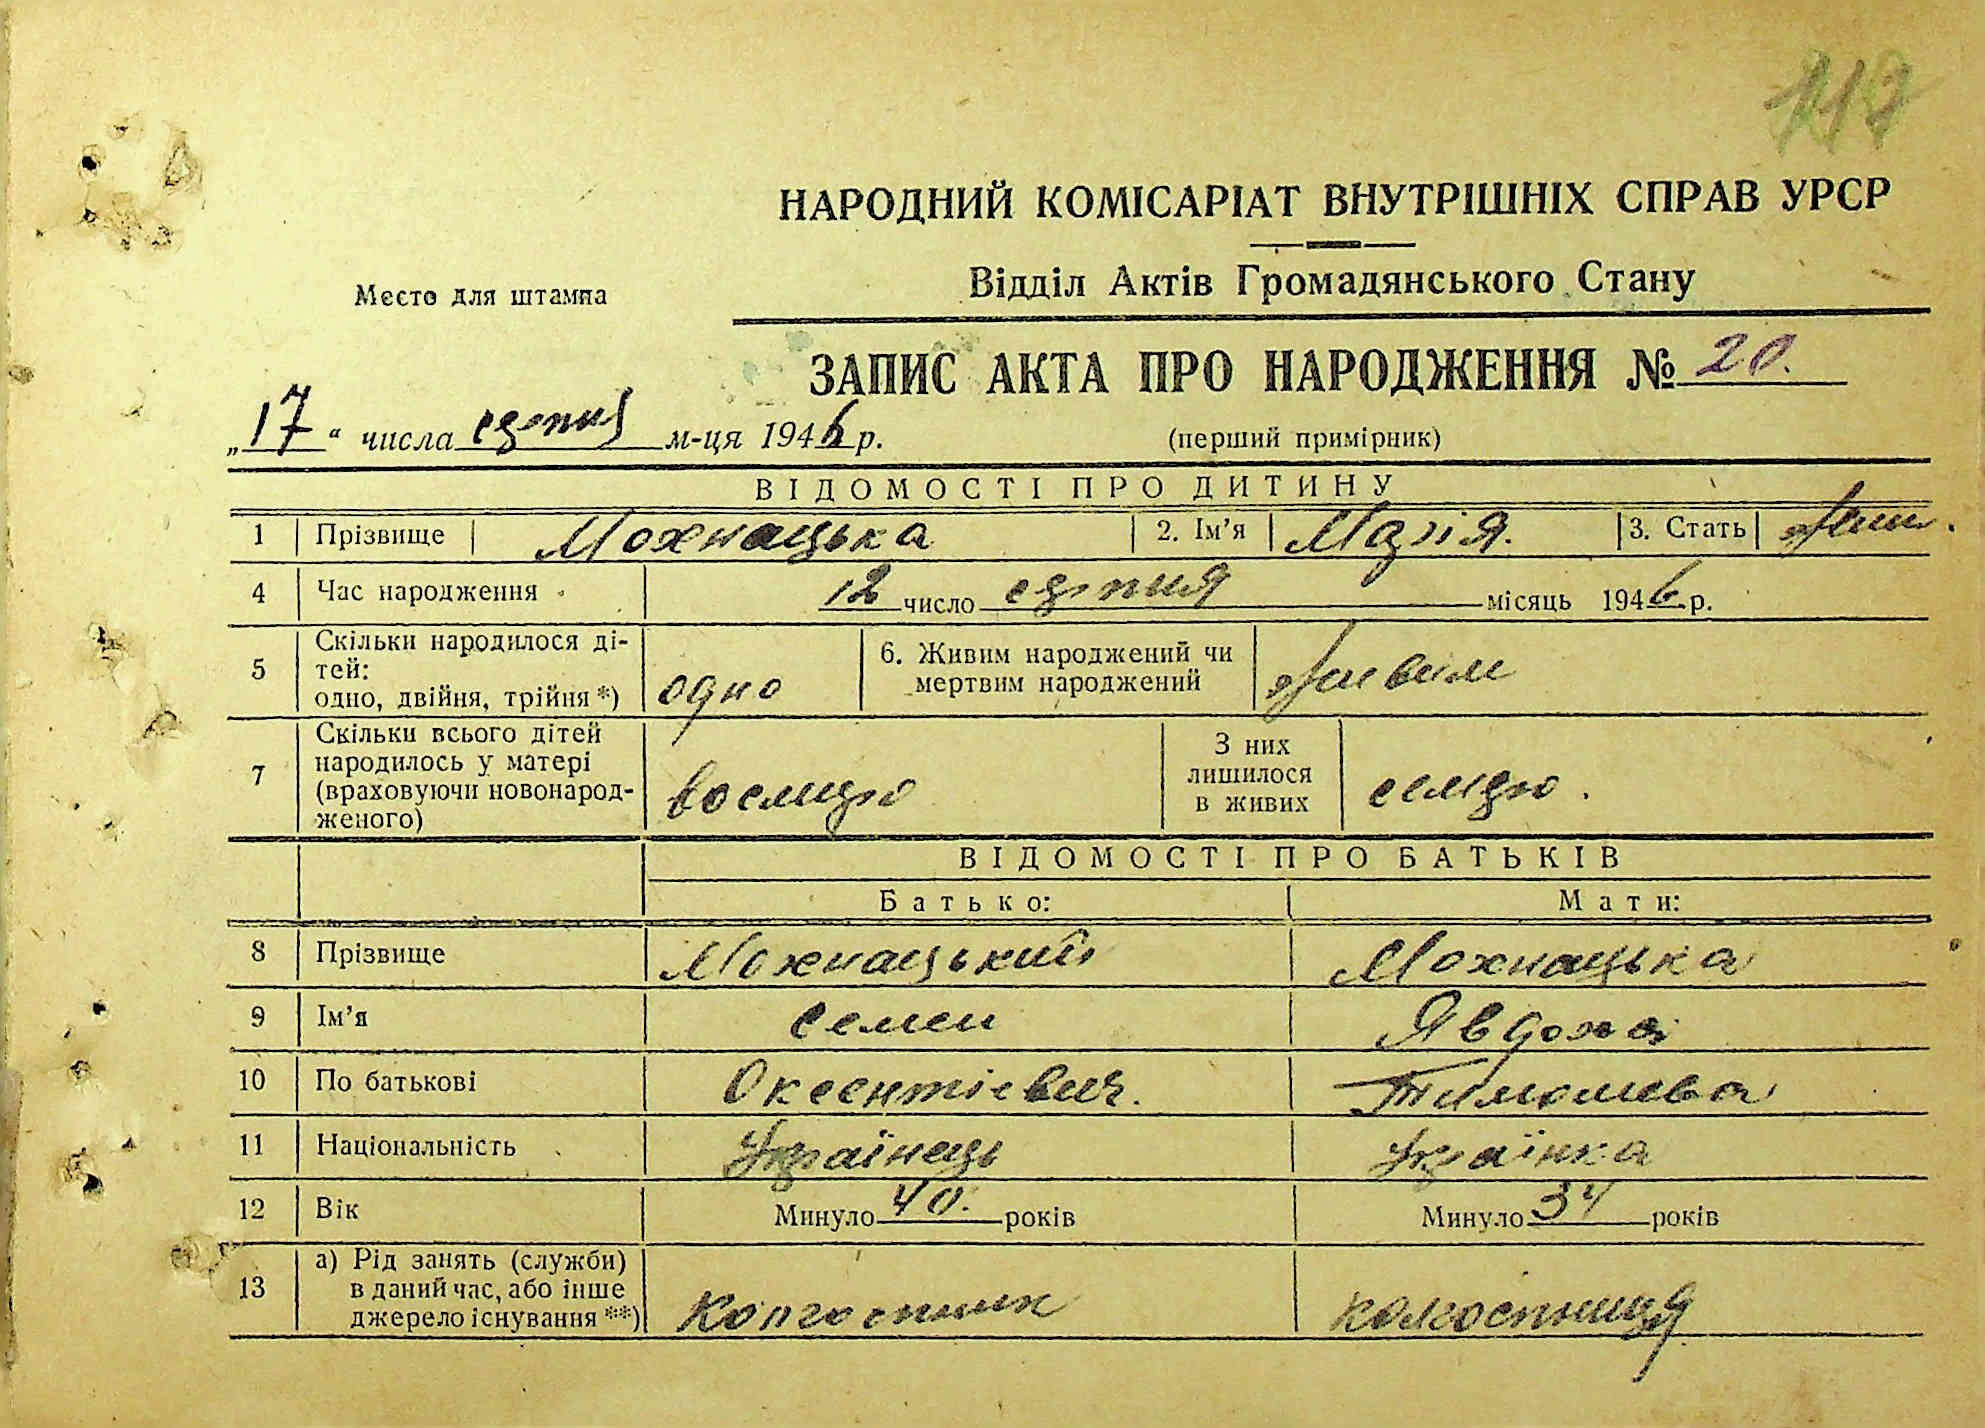 117
НАРОДНИЙ КОМІСАРІАТ ВНУТРІШНІХ СПРАВ УРСР
Відділ Актів Громадянського Стану
Место для штампа
ЗАПИС АКТА ПРО НАРОДЖЕННЯ № 20.
„17“ числа серпня м-ця 1946 р.
(перший примірник)
ВІДОМОСТІ ПРО ДИТИНУ
1 Прізвище Мохнацька 2. Ім’я Марія. 3. Стать жин.
4 Час народження 12 число серпня місяць 1946 р.
5 Скільки народилося ді-
тей:
одно, двійня, трійня *) одно
6. Живим народжений чи
мертвим народжений живим
7 Скільки всього дітей
народилось у матері
(враховуючи новонарод-
женого) восмеро
З них
лишилося
в живих семеро.
ВІДОМОСТІ ПРО БАТЬКІВ
Батько: Мати:
8 Прізвище Мохнацький Мохнацька
9 Ім’я Семен Явдоха
10 По батькові Оксентієвич. Тимошева
11 Національність Українець Українка
12 Вік Минуло 40. років Минуло 34 років
13 а) Рід занять (служби)
в даний час, або інше
джерело існування **) колгоспник колгоспниця